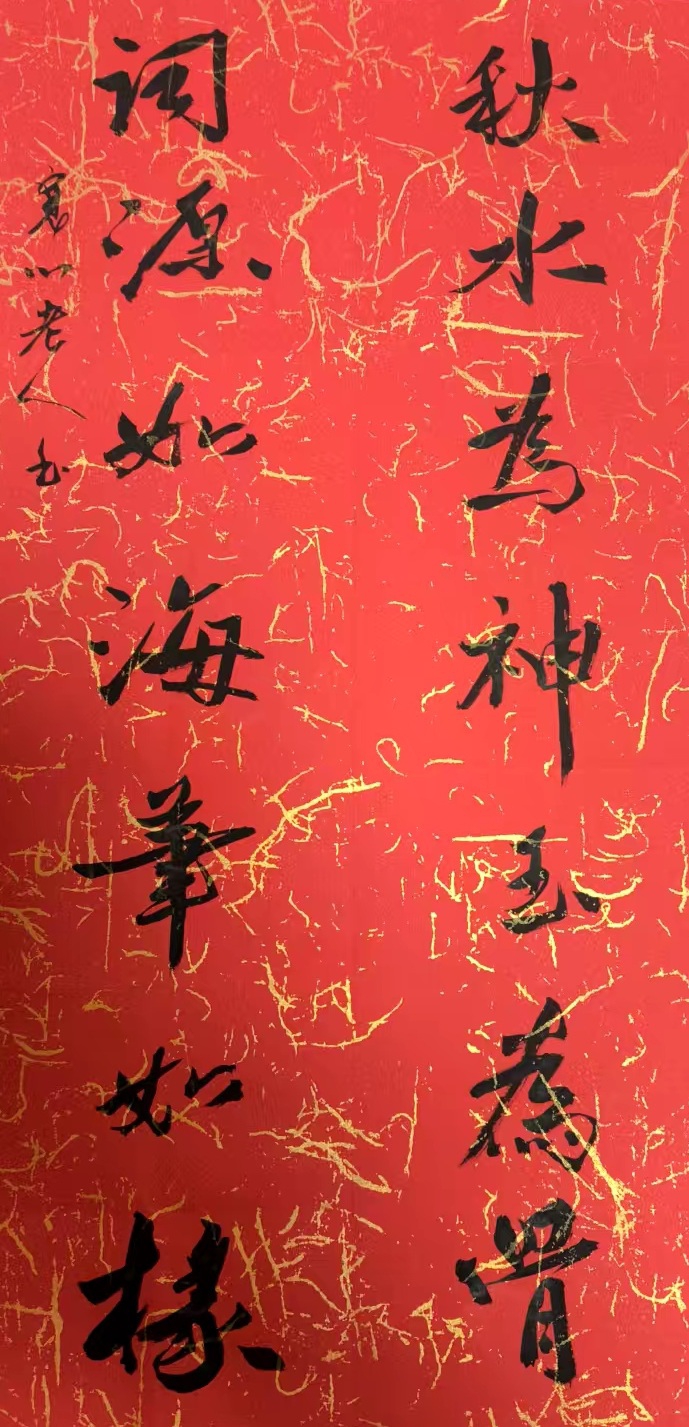 秋水為神玉為骨
詞源如海筆如椽
老人书